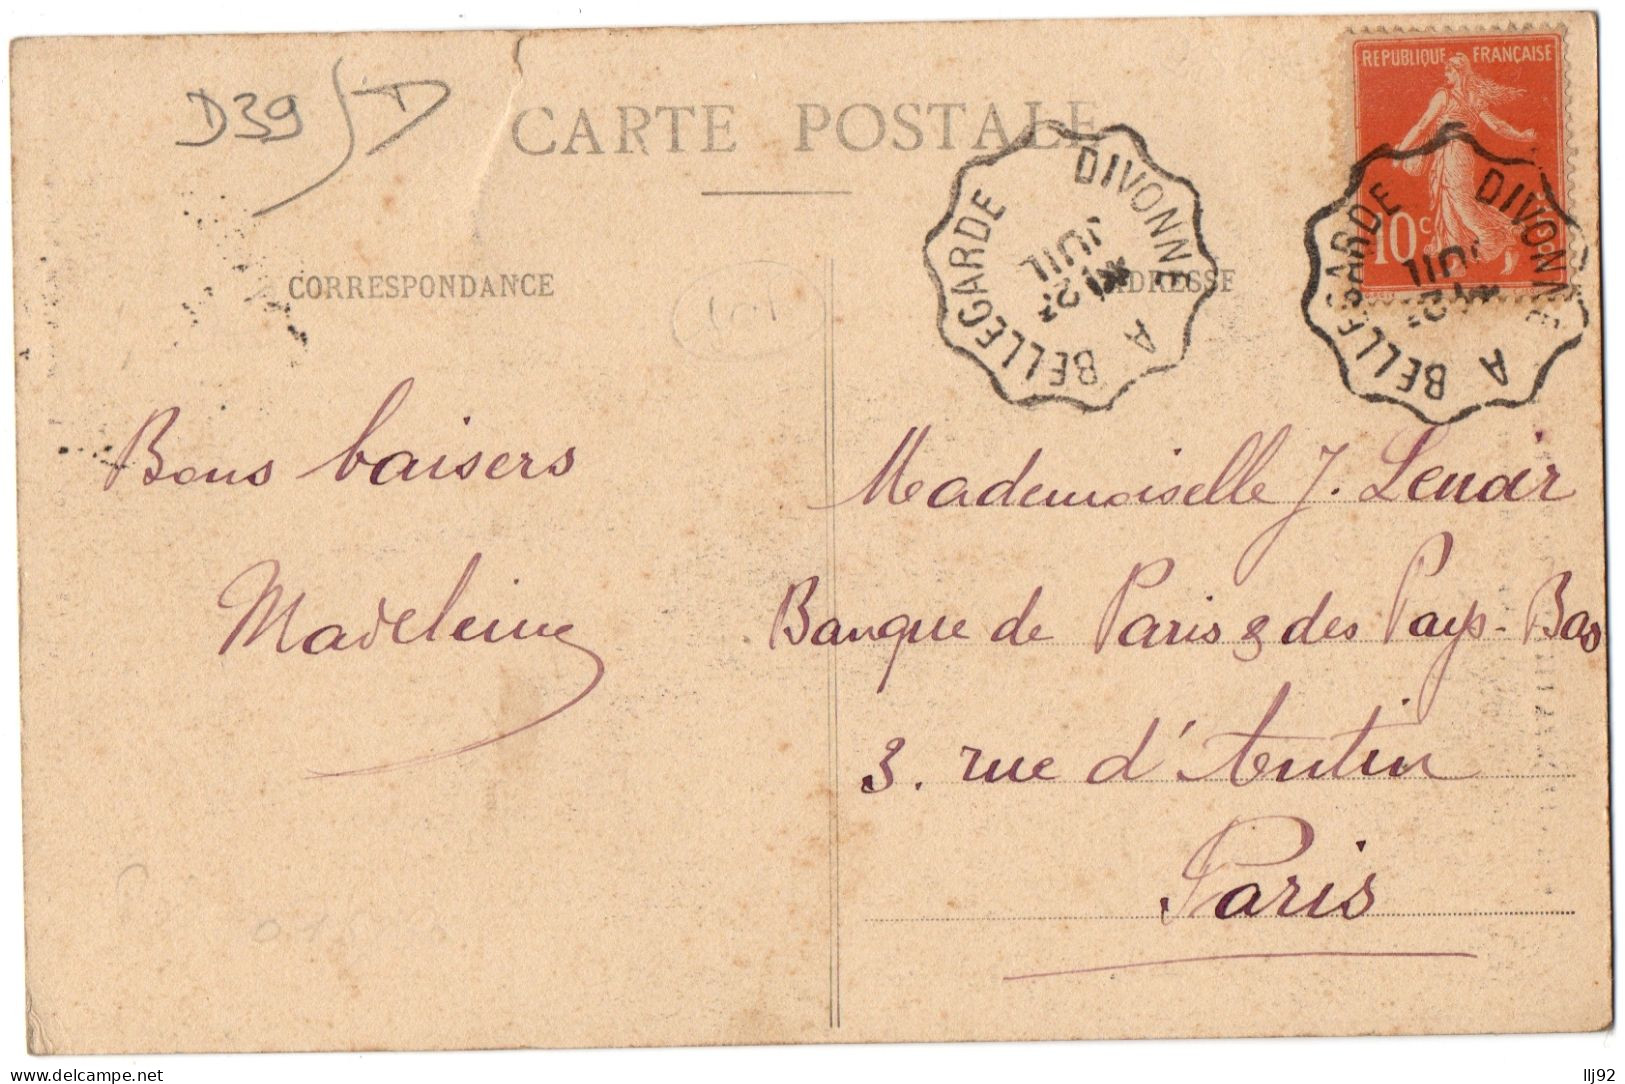 D39
CARTE POSTALE
REPUBLIQUE FRANÇAISE
10c
DIVONNE A BELLEGARDE
JUIL
DIVONNE A BELLEGARDE
JUIL
CORRESPONDANCE
ADRESSE
Bons baisers
Madeleine
Mademoiselle J. Lenoir
Banque de Paris & des Pays-Bas
3. rue d'Antin
Paris
delcampe.net
llj92